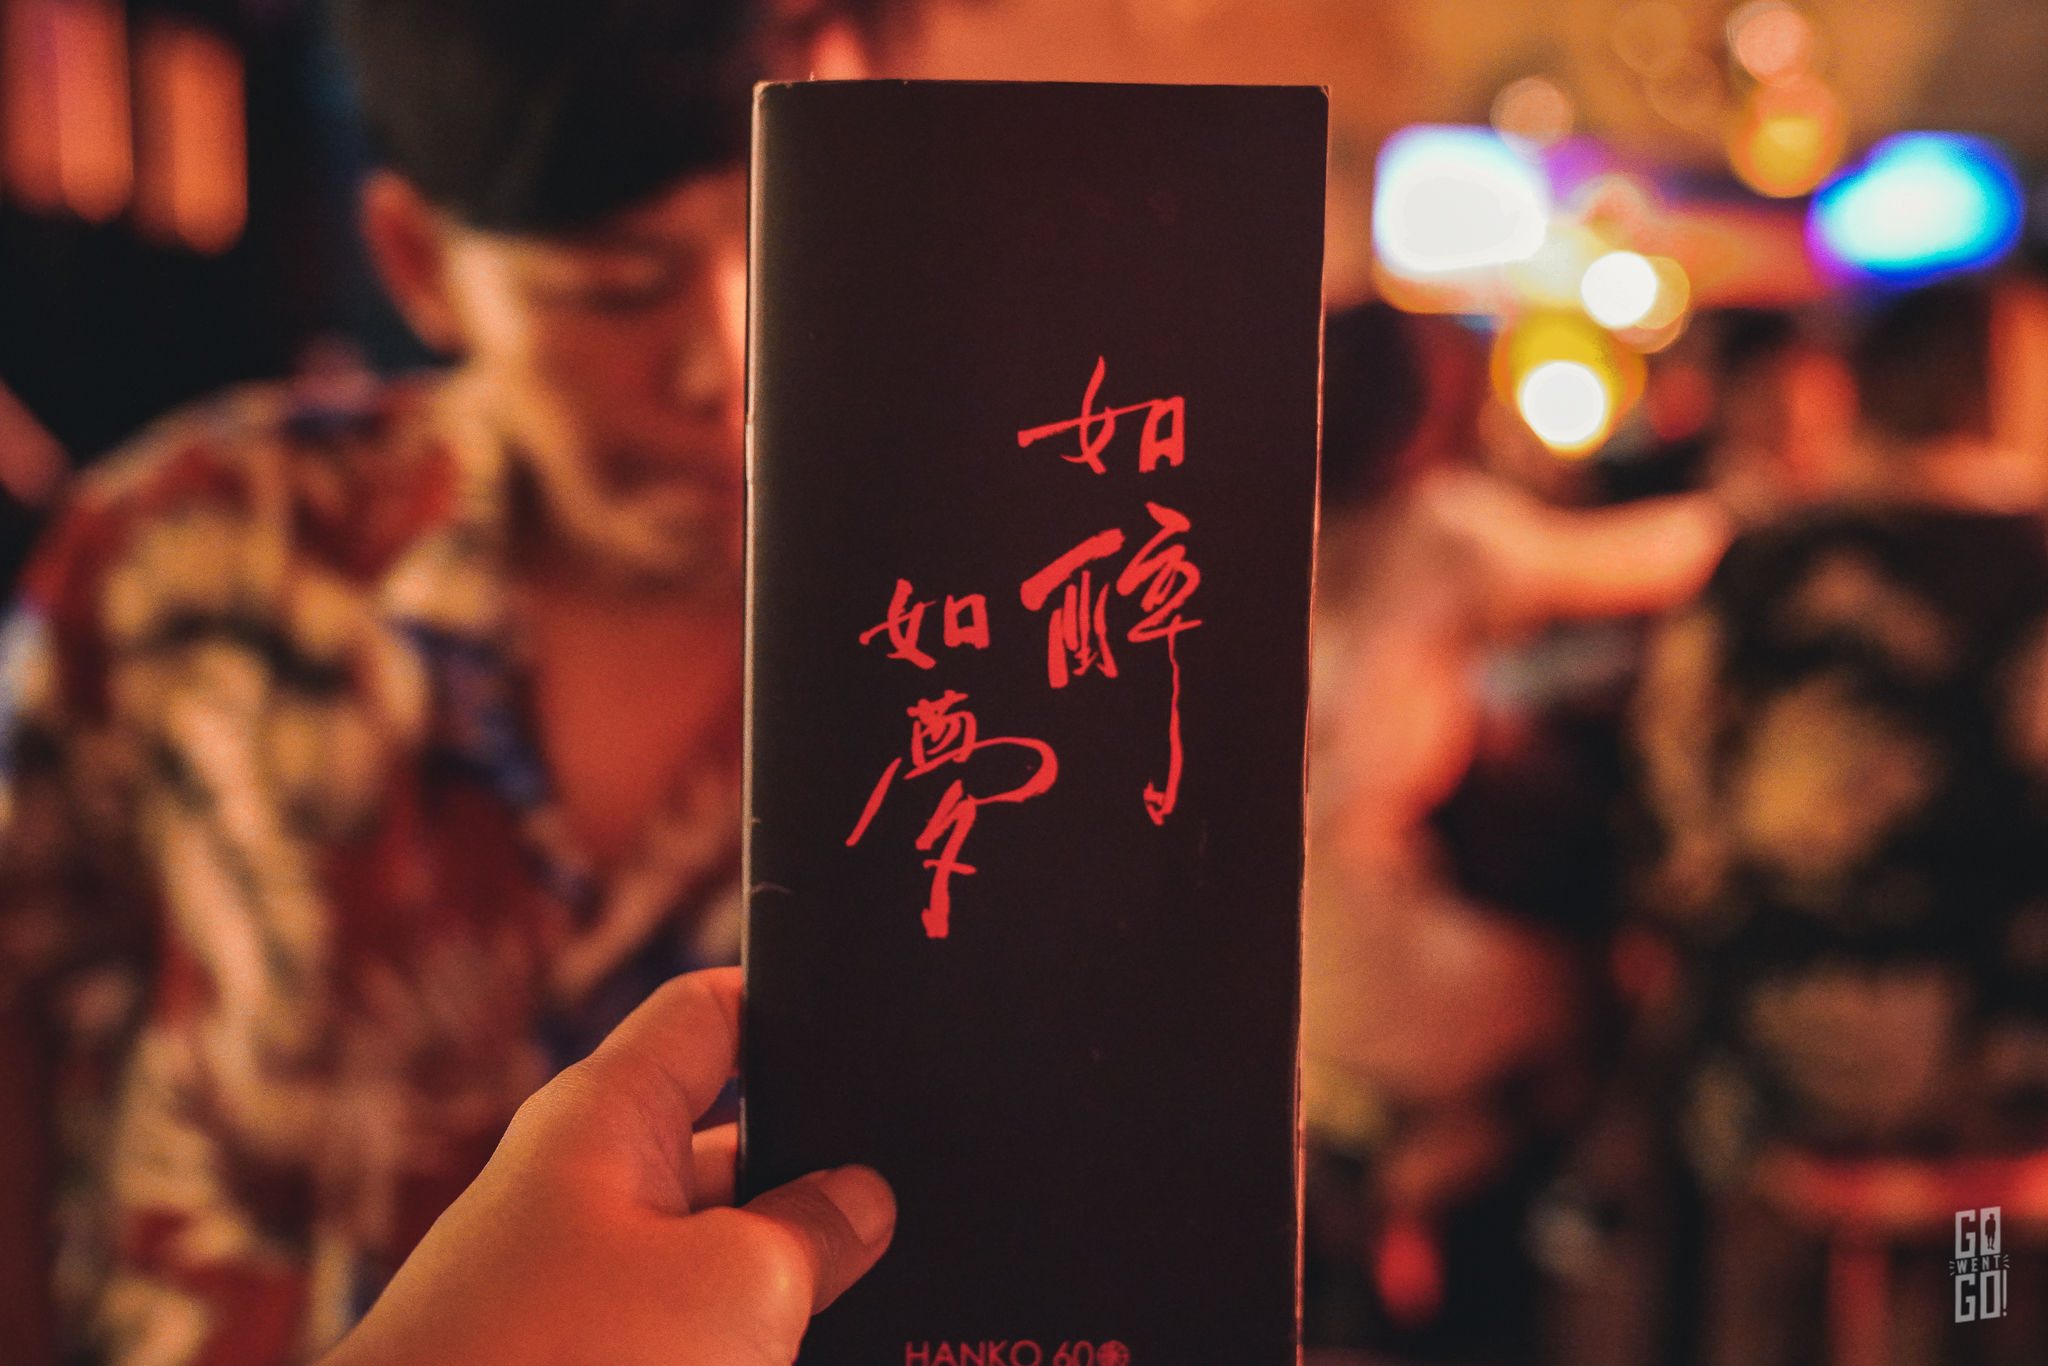 如醉
如夢
HANKO 60
GO
WENT
GO!